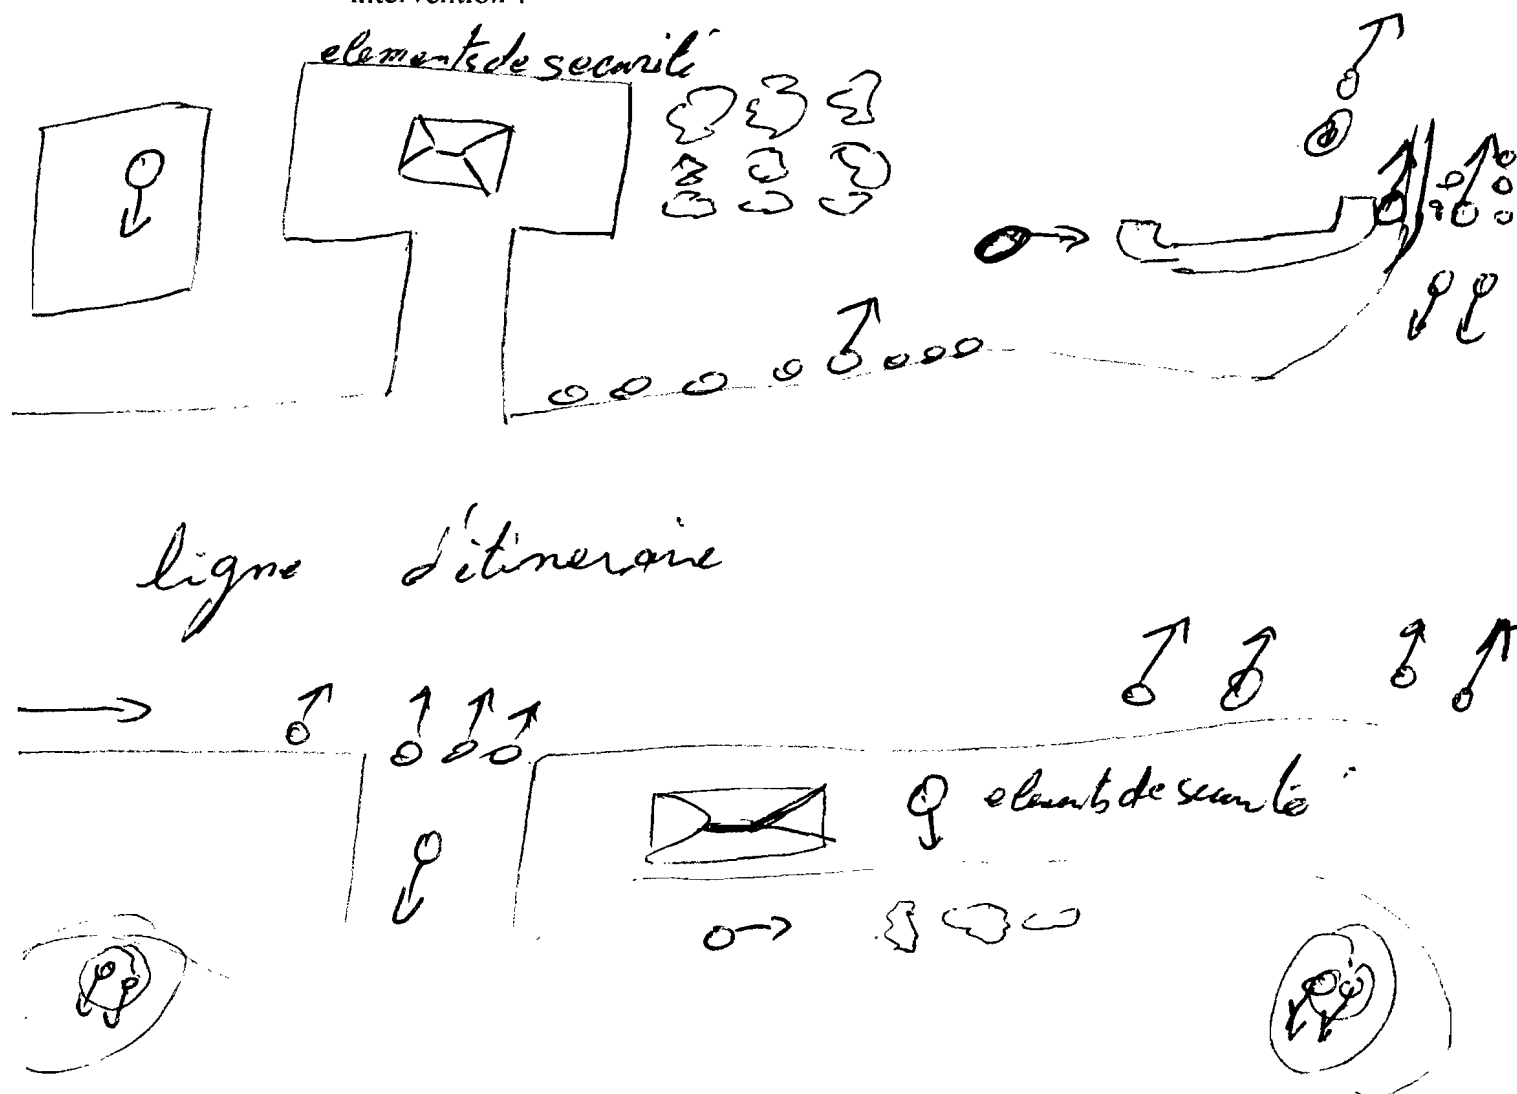 intervention :
elements de securité
ligne d'itineraire
elements de securité